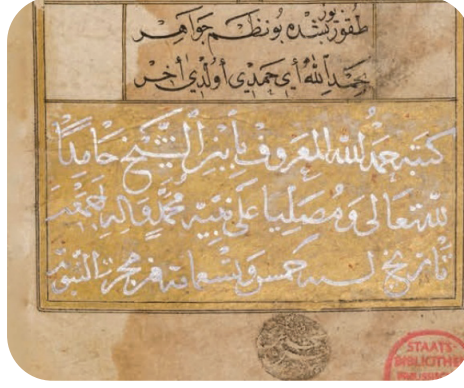 طقوز يوز بشده بو نظم جواهر
بحمد الله أي حمدي أولدي آخر
كتبه حمد الله المعروف بابن الشيخ حامدًا
لله تعالى ومصليا على نبيه محمد وآله أجمعين
تاريخ لسنه خمس وتسعمائة من هجرة النبوية
STAATS-
BIBLIOTHE